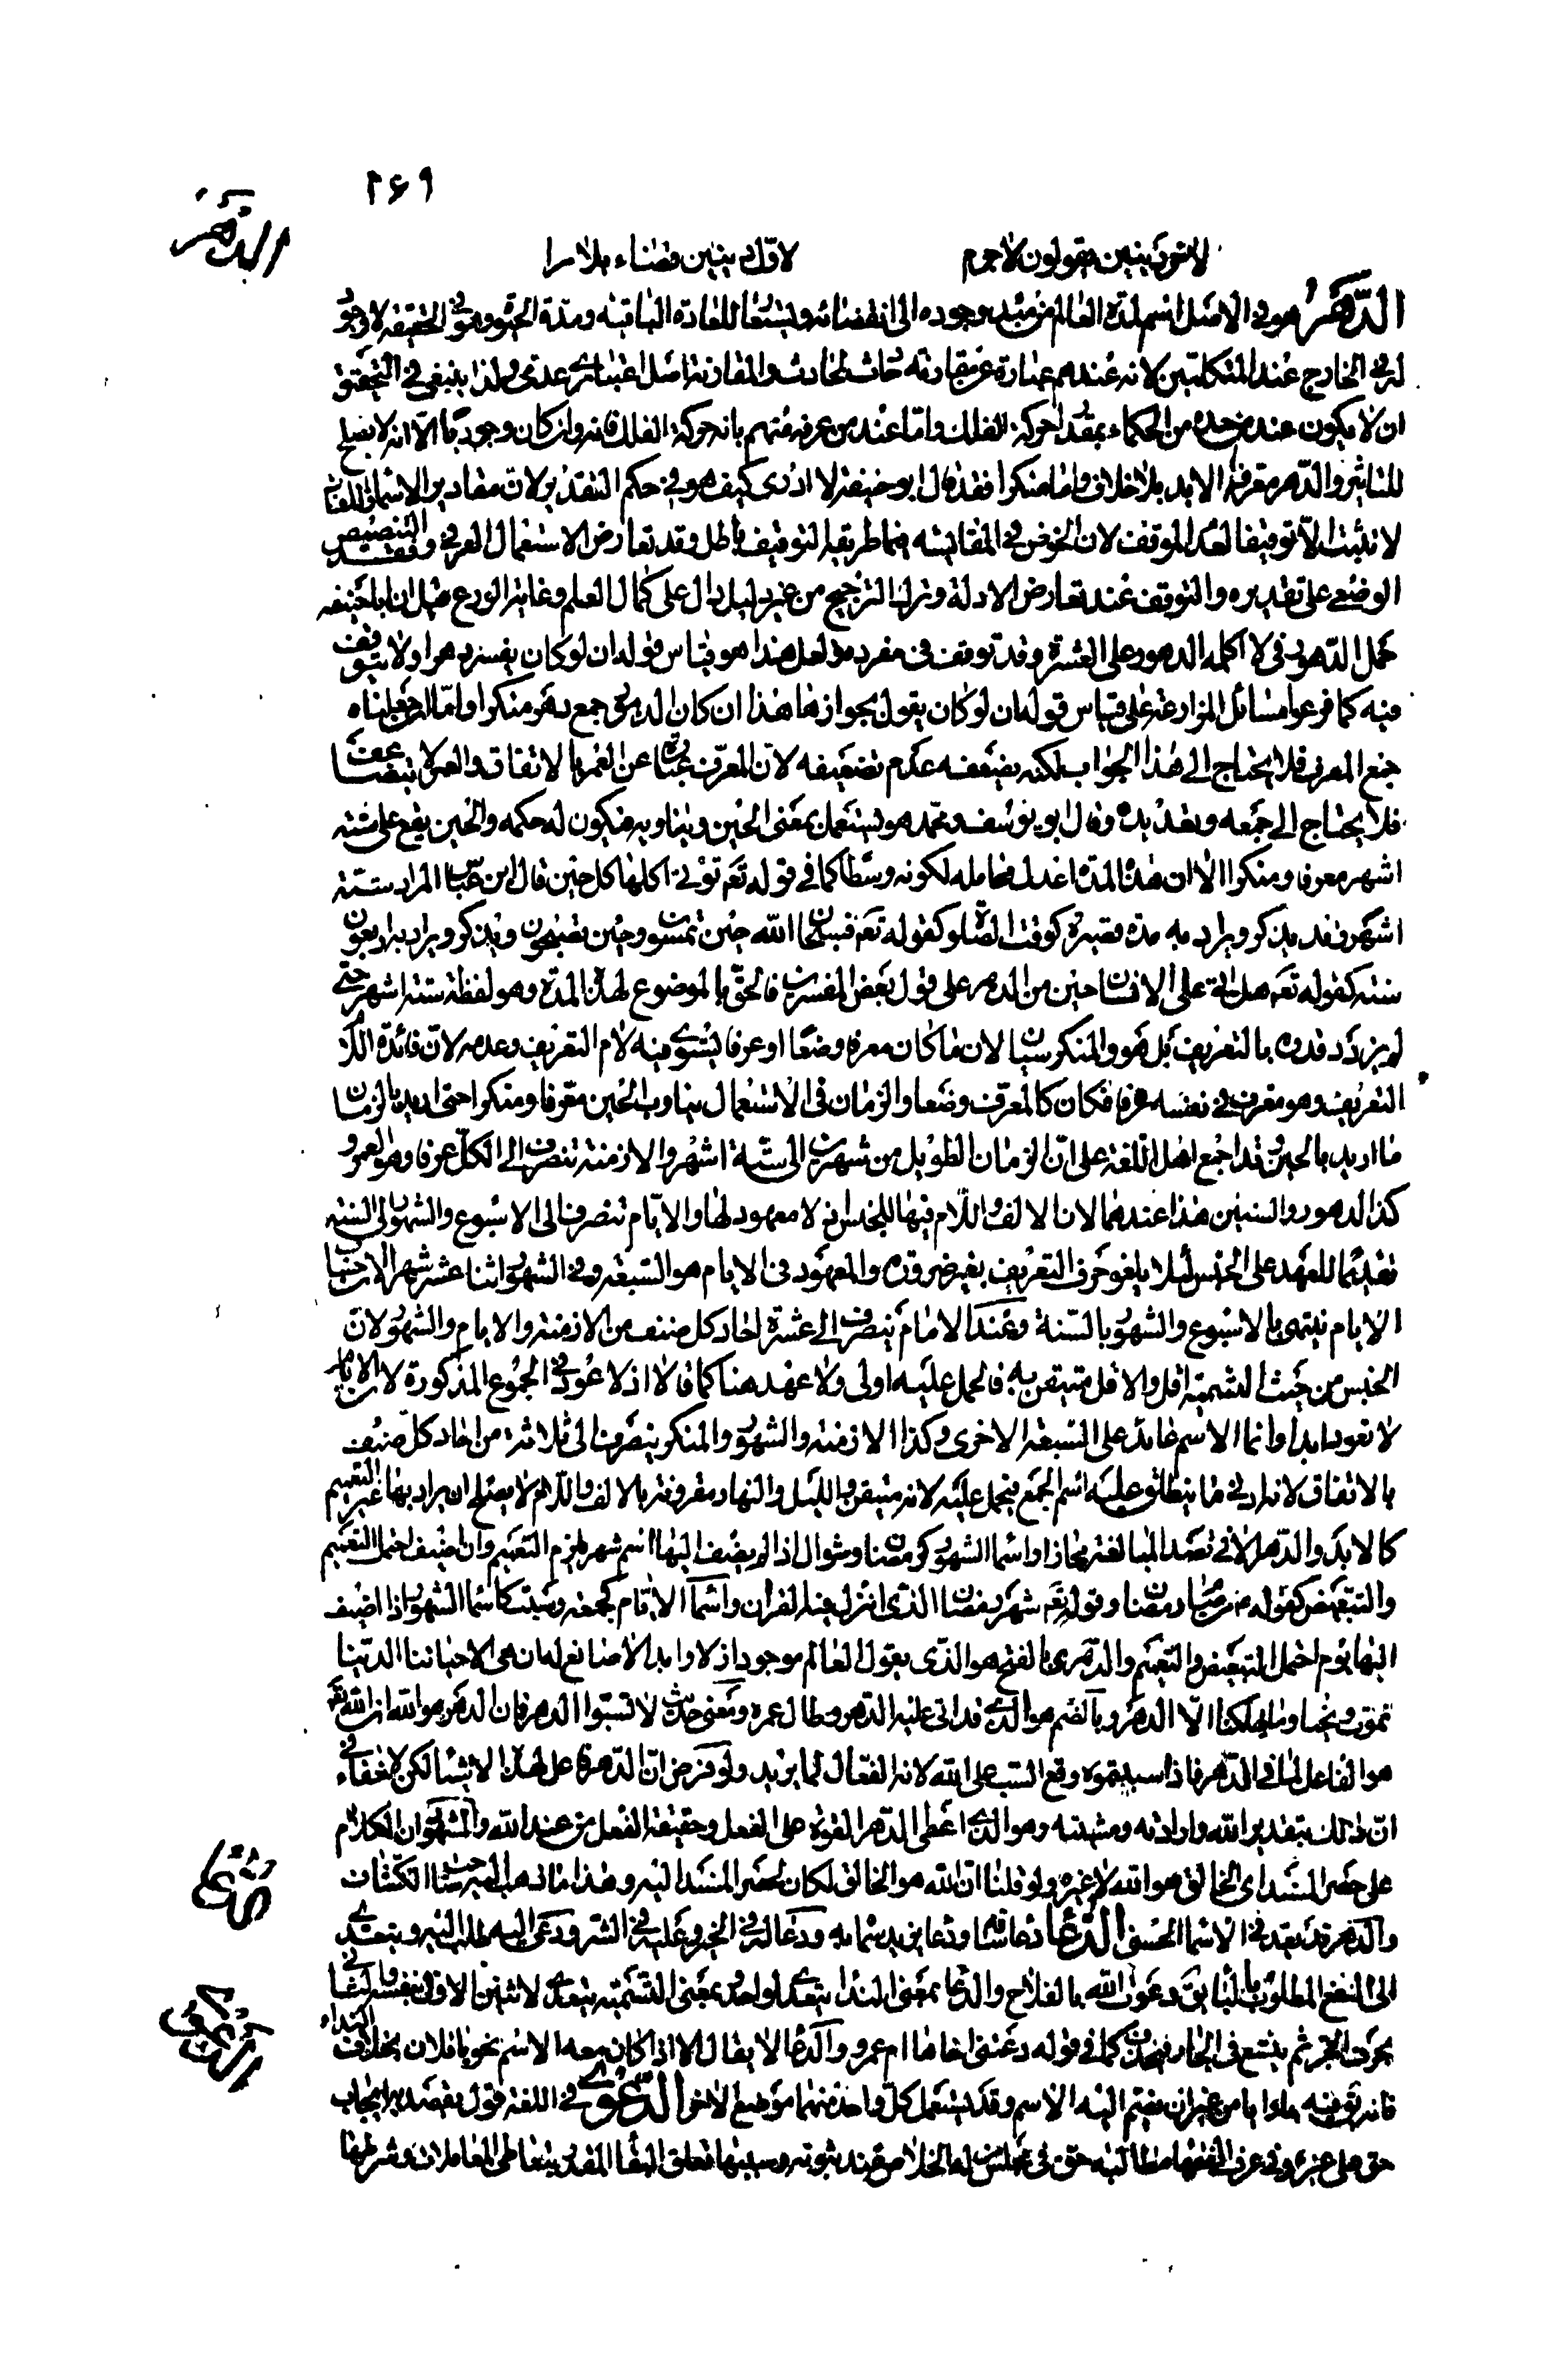 ١٦٩
الدهر
لا تؤدي بنين يقولون لا جرم لاوّل بنين قضاء بلا مرا
الدَّهْرُ هو في الاصل اسم لمدة العالم من مبدء وجوده الى انقضائه ويستعار للعادة الباقية ومدة الحيوة وهو في الحقيقة لا وجود
له في الخارج عند المتكلمين لانه عندهم عبارة عن مقارنة حادث لحادث والمقارنة اصل اعتباري عدمي ولذا ينبغي في التحقيق
ان لا يكون عند من حده من الحكماء بمقدار حركة الفلك واما عند من عرفه منهم بانه حركة الفلك فانه وان كان وجوديا الا انه لا يصلح
للتاثير والدهر معرفة الابد بلا خلاف واما منكرا فقد قال ابو حنيفة لا ادري كيف هو في حكم التقدير لان مقادير الاسماء واللغات
لا تثبت الا توقيفا لعدم الموقف لان الخوض في المقايسة فيما طريقه التوقيف باطل وقد تعارض الاستعمال العرفي وفقد التنصيص
الوضعي على تقديره والتوقف عند تعارض الادلة وترك الترجيح من غير دليل دال على كمال العلم وغاية الورع قيل ان ابا حنيفة
حمل الدهور في لا اكلمه الدهور على العشرة وقد توقف في مفرده لعل هذا هو قياس قوله ان لو كان يفسر دهرا ولا يتوقف
فيه كما فرعوا مسائل المزارعة على قياس قوله ان لو كان يقول بجوازها هذا ان كان الدهور جمع دهر منكرا واما اذا جعلناه
جمع المعرف فلا يحتاج الى هذا الجواب لكنه يضعفه عدم تضعيفه لان المعرف عبارة عن العمر بالاتفاق والعمر لا يتضاعف
فلا يحتاج الى جمعه وتعديده وقال ابو يوسف ومحمد هو يستعمل بمعنى الحين ويناوبه فيكون له حكمه والحين يقع على ستة
اشهر معرفا ومنكرا الا ان هذه المدة اعدل محامله لكونه وسطا كما في قوله تعم تؤتي اكلها كل حين قال ابن عباس المراد ستة
اشهر وقد يذكر ويراد به مدة قصيرة كوقت الصلوة كقوله تعم فسبحان الله حين تمسون وحين تصبحون ويذكر ويراد به اربعون
سنة كقوله تعم هل اتى على الانسان حين من الدهر على قول بعض المفسرين فالحق بالموضوع لهذه المدة وهو لفظة ستة اشهر حتى
لم يزدد قدره بالتعريف بل هو والمنكر سيان لان ما كان معرفة وضعا او عرفا يستوي فيه لام التعريف وعدمه لان فائدة اللام
التعريف وهو معرف في نفسه عرفا فكان كالمعرف وضعا والزمان في الاستعمال يناوب الحين معرفا ومنكرا حتى اريد بالزمان
ما اريد بالحين وقد اجمع اهل اللغة على ان الزمان الطويل من شهرين الى ستة اشهر والازمنة تنصرف الى الكل عرفا وهو العمر
كذا الدهور والسنين هذا عندهما لان الالف واللام فيها للجنس اذ لا معهود لها والايام تنصرف الى الاسبوع والشهور الى السنة
تقديما للعهد على الجنس لئلا يلغو حرف التعريف بغير ضرورة والمعهود في الايام هو السبعة وفي الشهور اثنا عشر شهرا لان حساب
الايام ينتهي بالاسبوع والشهور بالسنة وعند الامام ينصرف الى عشرة احاد كل صنف من الازمنة والايام والشهور لان
الجنس من حيث التسمية اقل والاقل متيقن به فالحمل عليه اولى ولا عهد هنا كما قالا اذ لا عود في الجموع المذكورة لان الايام
لا تعود ابدا وانما الاسم عائد على السبعة الاخرى وكذا الازمنة والشهور والمنكر ينصرف الى ثلاثة من احاد كل صنف
بالاتفاق لانه ادنى ما ينطلق عليه اسم الجمع فيحمل عليه لانه متيقن والليل والنهار مقرونة بالالف واللام لا يصلح ان يراد بها غير التعميم
كالابد والدهر الا في قصد المبالغة مجازا واسماء الشهور كرمضان وشوال اذا لم يضف اليها اسم شهر يلزم التعميم وان اضيف احتمل التعميم
والتبعيض كقوله من صام رمضان وقوله تعم شهر رمضان الذي انزل فيه القران واسماء الايام كجمعة وسبت كاسماء الشهور اذا اضيف
اليها يوم احتمل التبعيض والتعميم والدهري بالفتح هو الذي يقول العالم موجود ازلا وابدا لا صانع له ان هي الا حياتنا الدنيا
نموت ونحيا وما يهلكنا الا الدهر وبالضم هو الذي قد اتى عليه الدهر وطال عمره ومعنى حديث لا تسبوا الدهر فان الدهر هو الله ان الله تعم
هو الفاعل لما في الدهر فاذا سببتموه وقع السب على الله لانه الفعال لما يريد ولو فرض ان الدهر فاعل لهذه الاشياء لكن لا خفاء في
ان ذلك بتقدير الله وارادته ومشيته وهو الذي اعطى الدهر القوة على الفعل وحقيقة الفعل من عند الله والمشهور ان الكلام
على حصر المسند اى الخالق هو الله لا غيره ولو قلنا ان الله هو الخالق لكان لحصر المسند اليه وهذا ما ذهب اليه صاحب الكشاف
والدهر قد يعد في الاسماء الحسنى الدُّعَاء دعا ساقه ودعا بزيد سماه به ودعا له في الخير وعليه في الشر ودعى اليه طلب اليه ويتعدى
الى النفع المطلوب بالباء يق دعوت الله بالفلاح والدعاء بمعنى النداء يتعدى لواحد وبمعنى التسمية يتعدى لاثنين الاول بنفسه والثاني
بحرف الجر ثم يتسع في الجار فيحذف كما في قوله دعتني اخاها ام عمرو والدعاء لا يقال الا اذا كان معه الاسم نحو يا فلان بخلاف النداء
فانه يق فيه يا وايا من غير ان يضم اليه الاسم وقد يستعمل كل واحد منهما موضع الاخر الدَّعْوى في اللغة قول يقصد به ايجاب
حق على غيره وفي عرف الفقهاء مطالبة حق في مجلس من له الخلاص عند ثبوته وسببها تعلق البقاء المقدر بتعاطي المعاملات وشرطها